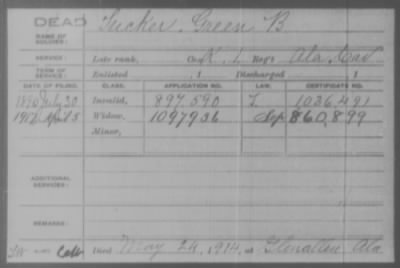 DEAD
Tucker, Green B
NAME OF SOLDIER:
SERVICE: Late rank, Co. K, 1 Reg't Ala Cav
TERM OF SERVICE: Enlisted , 1 Discharged , 1
DATE OF FILING. CLASS. APPLICATION NO. LAW. CERTIFICATE NO.
1890 July 30 Invalid, 897.590 1036.491
1912 April 5 Widow, 1097936 860,899
Minor,
ADDITIONAL SERVICES:
REMARKS:
Died May 24, 1914, at Glenallen Ala